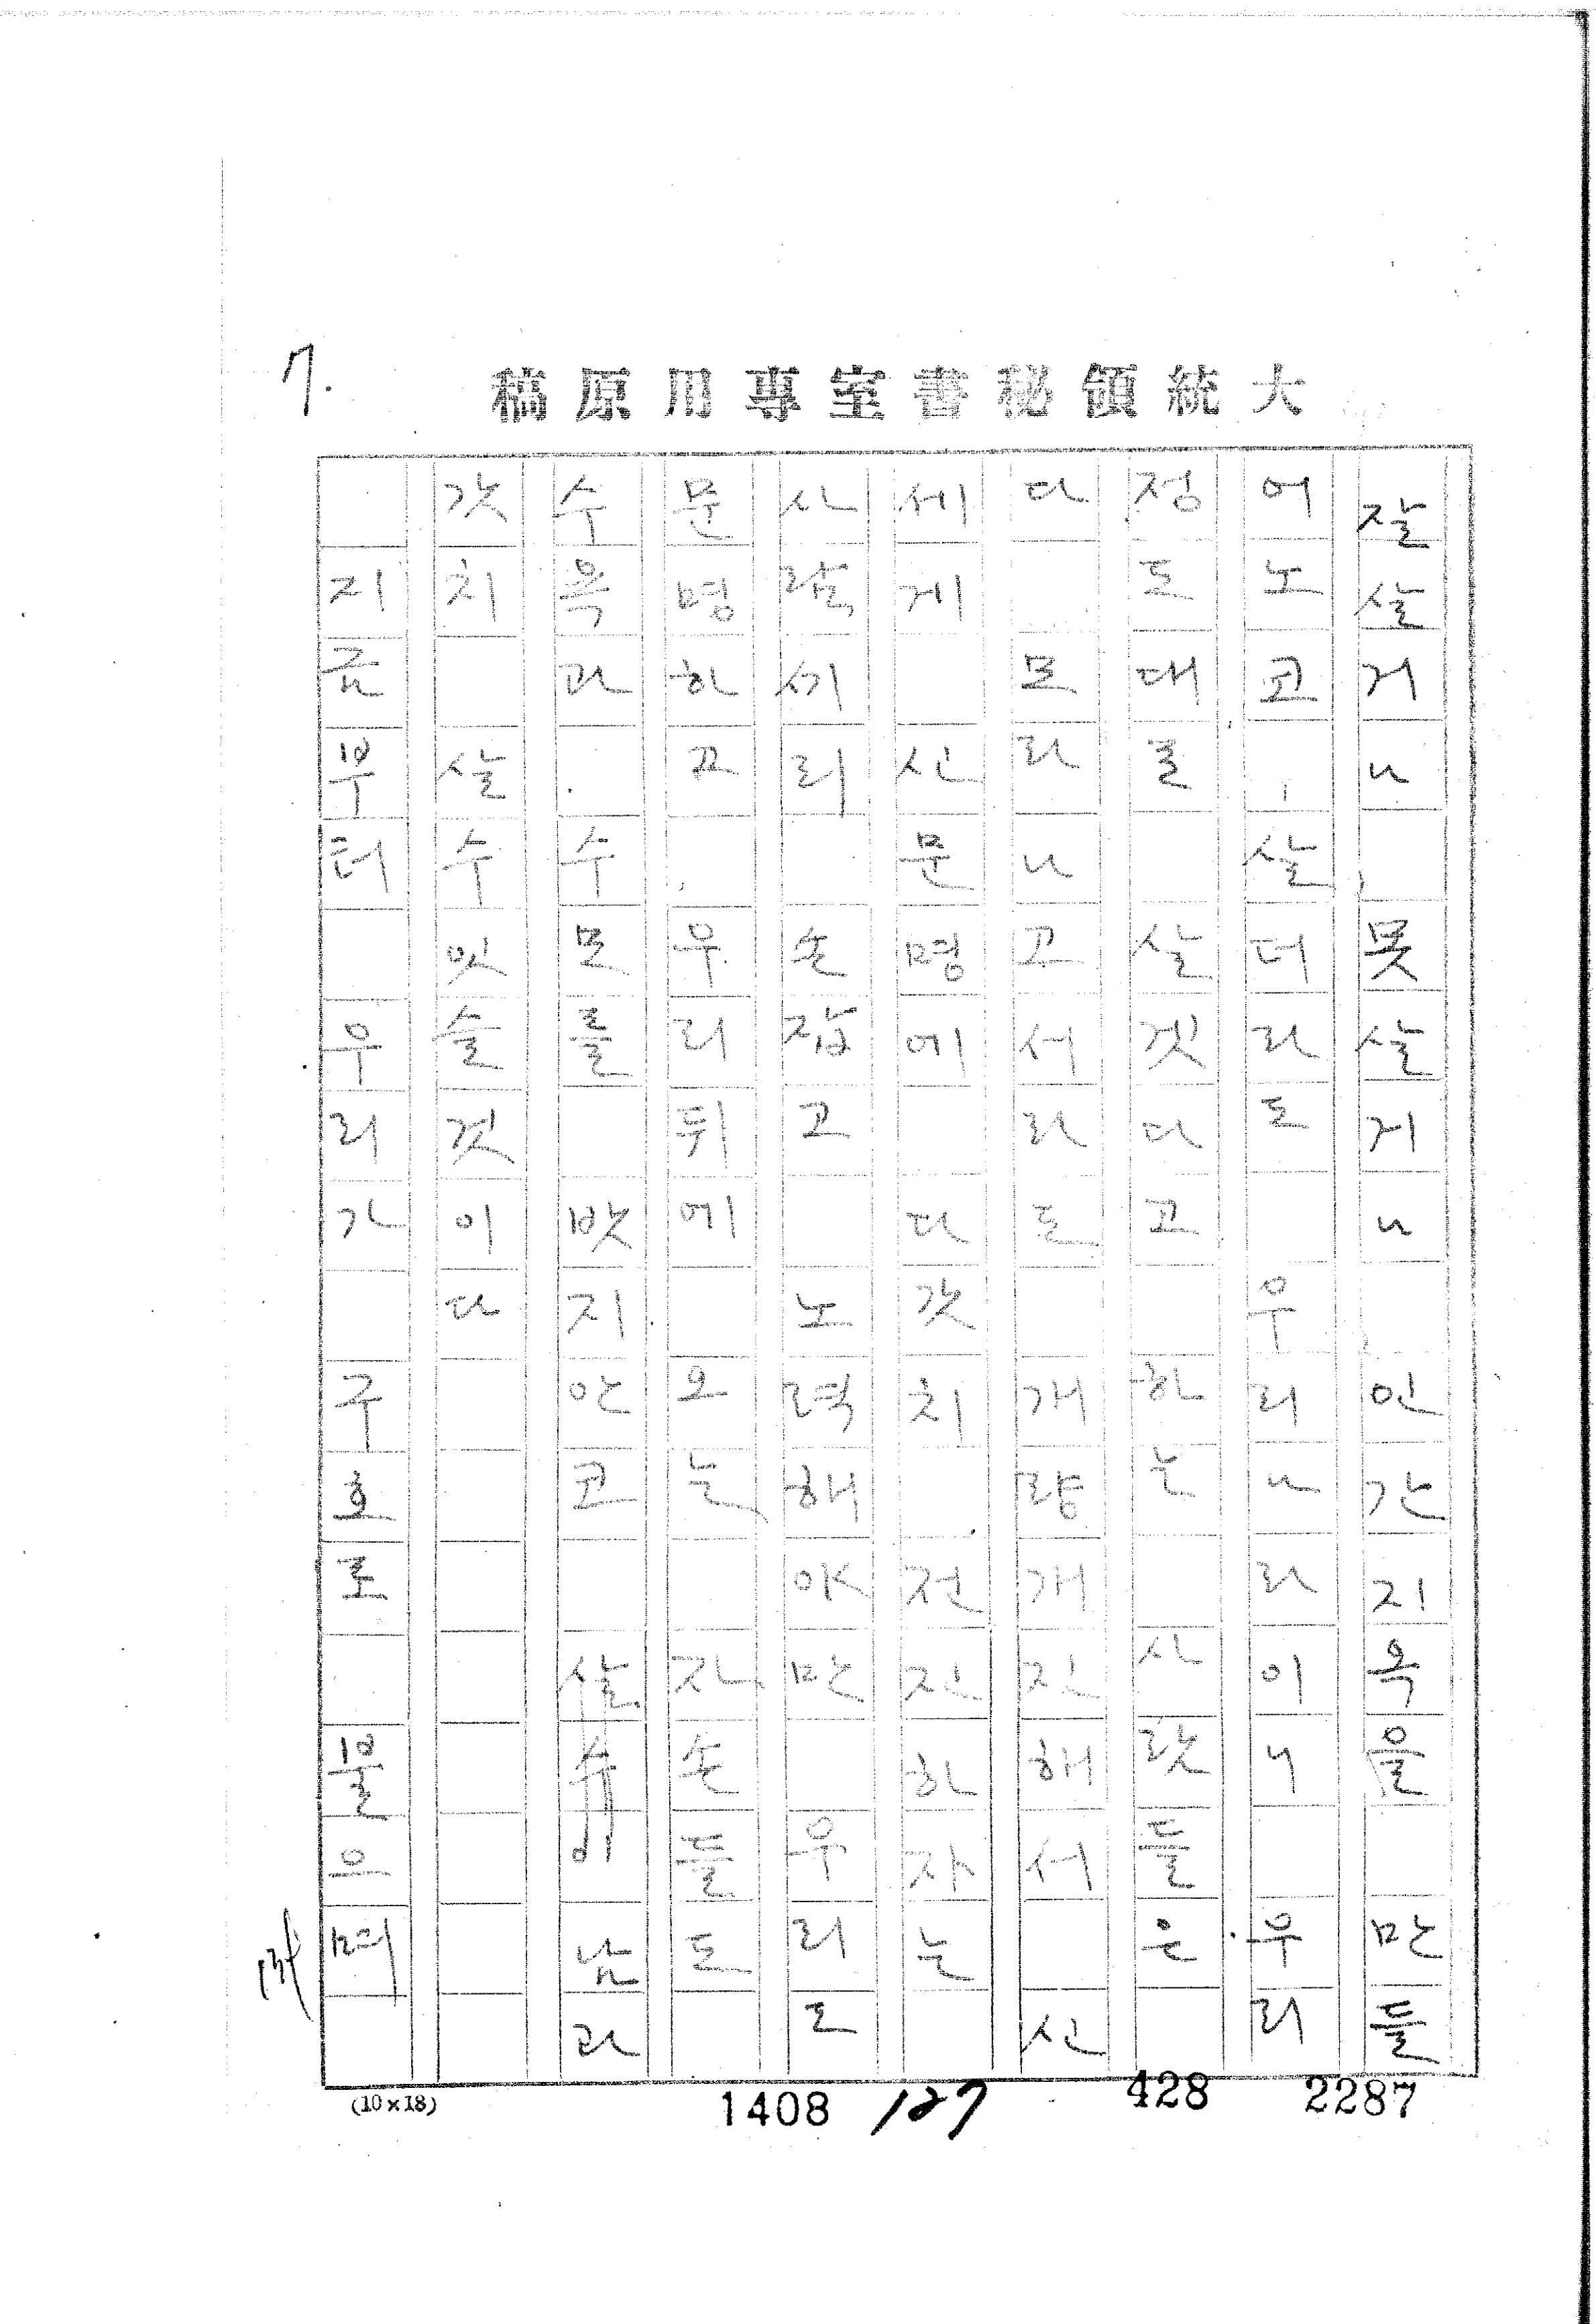 7.
大統領秘書室專用原稿
잘살거나, 못살거나, 인간지옥을 만들
어노코, 살더라도 우리나라이니 우리
정도대로 살겟다고 하는 사람들은
다 모라나고서라도 개량개진해서 신
세게 신문명에 다갓치 전진하자는
사람끼리 손잡고 노력해야만 우리도
문명하고, 우리뒤에 오는 자손들도
수욕과. 수모를 밧지안코 살수이남과
갓치 살수잇슬것이다
지금부터 우리가 구호로 물으며
(10×18)
1408 127 428 2287